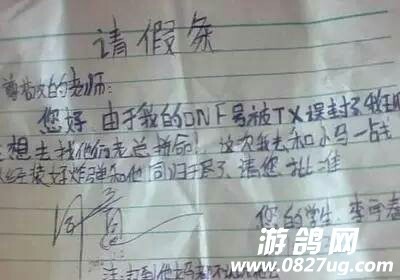 请假条
尊敬的老师:
您好,由于我的DNF号被TX误封了,我现
想去找他们老总拼命!这次我去和小马一战
经装好炸弹和他同归于尽了,请您批准
同意
您的学生:李
游鸽网
www.0827ug.com